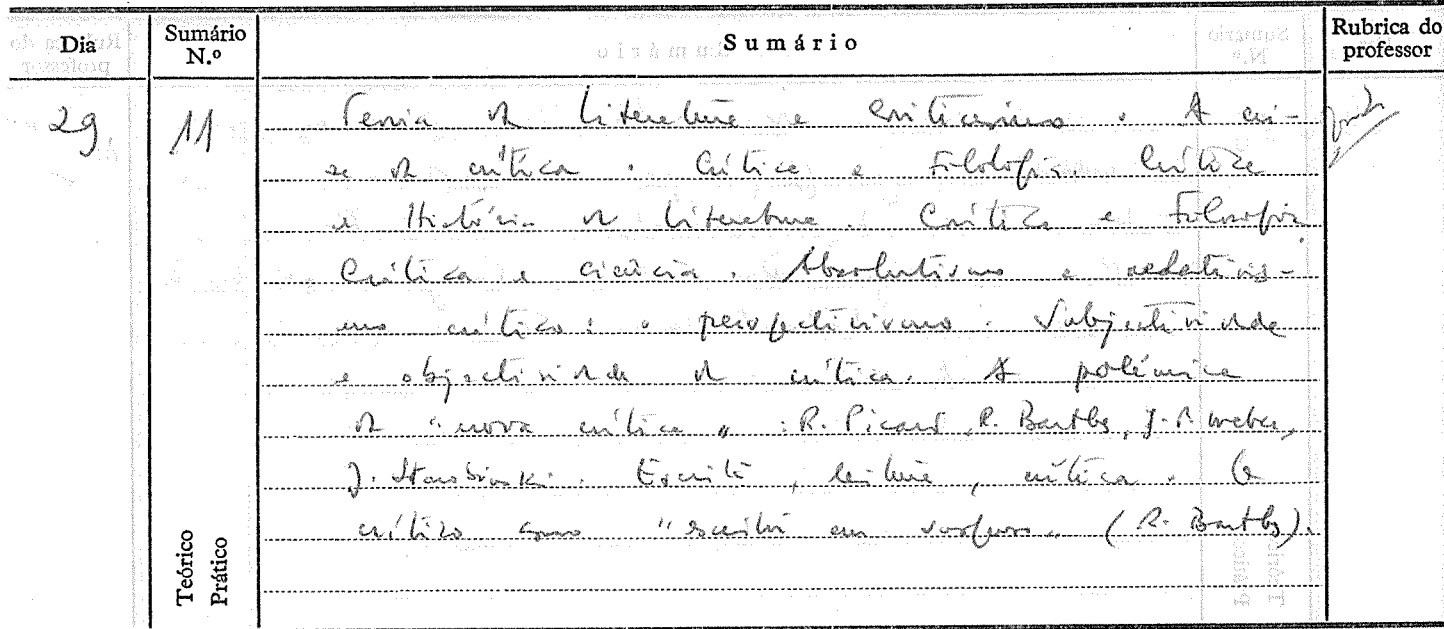 Dia Sumário N.º Sumário Rubrica do professor
29 11 Teoria da Literatura e criticismo. A cri-
se da crítica. Crítica e Filologia. Crítica
e História da Literatura. Crítica e Filosofia
Crítica e ciência. Absolutismo e relativis-
mo crítico: o perspectivismo. Subjectividade
e objectividade da crítica. A polémica
da "nova crítica": R. Picard, R. Barthes, J.-P. Weber,
J. Starobinski. Escrita, leitura, crítica. O
crítico como (R. Barthes).
Teórico
Prático